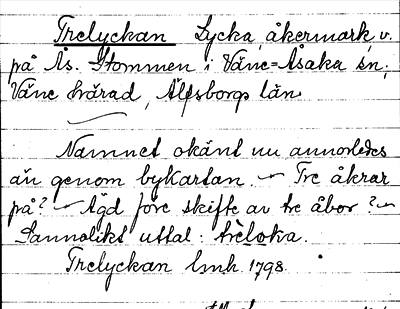 Trelyckan Lycka, åkermark, v.
på Ås. Stommen i Väne-Åsaka sn;
Väne härad, Älfsborgs län
Namnet okänt nu annorledes
än genom bykartan. Tre åkrar
på? Ägd före skifte av tre åbor?
Sannolikt uttal: trèloka.
Trelyckan lmh. 1798.